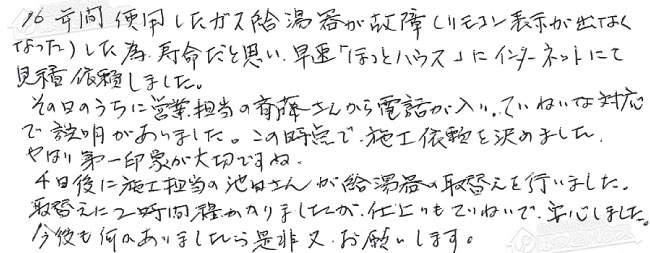 16年間使用したガス給湯器が故障(リモコン表示が出なく
なった)した為、寿命だと思い、早速「ほっとハウス」にインターネットにて
見積依頼しました。
その日のうちに営業担当の斉藤さんから電話が入り、ていねいな対応
で説明がありました。この時点で、施工依頼を決めました。
やはり第一印象が大切ですね。
4日後に施工担当の池田さんが給湯器の取替えを行いました。
取替えに2時間程かかりましたが、仕上りもていねいで、安心しました。
今後も何かありましたら是非又、お願いします。